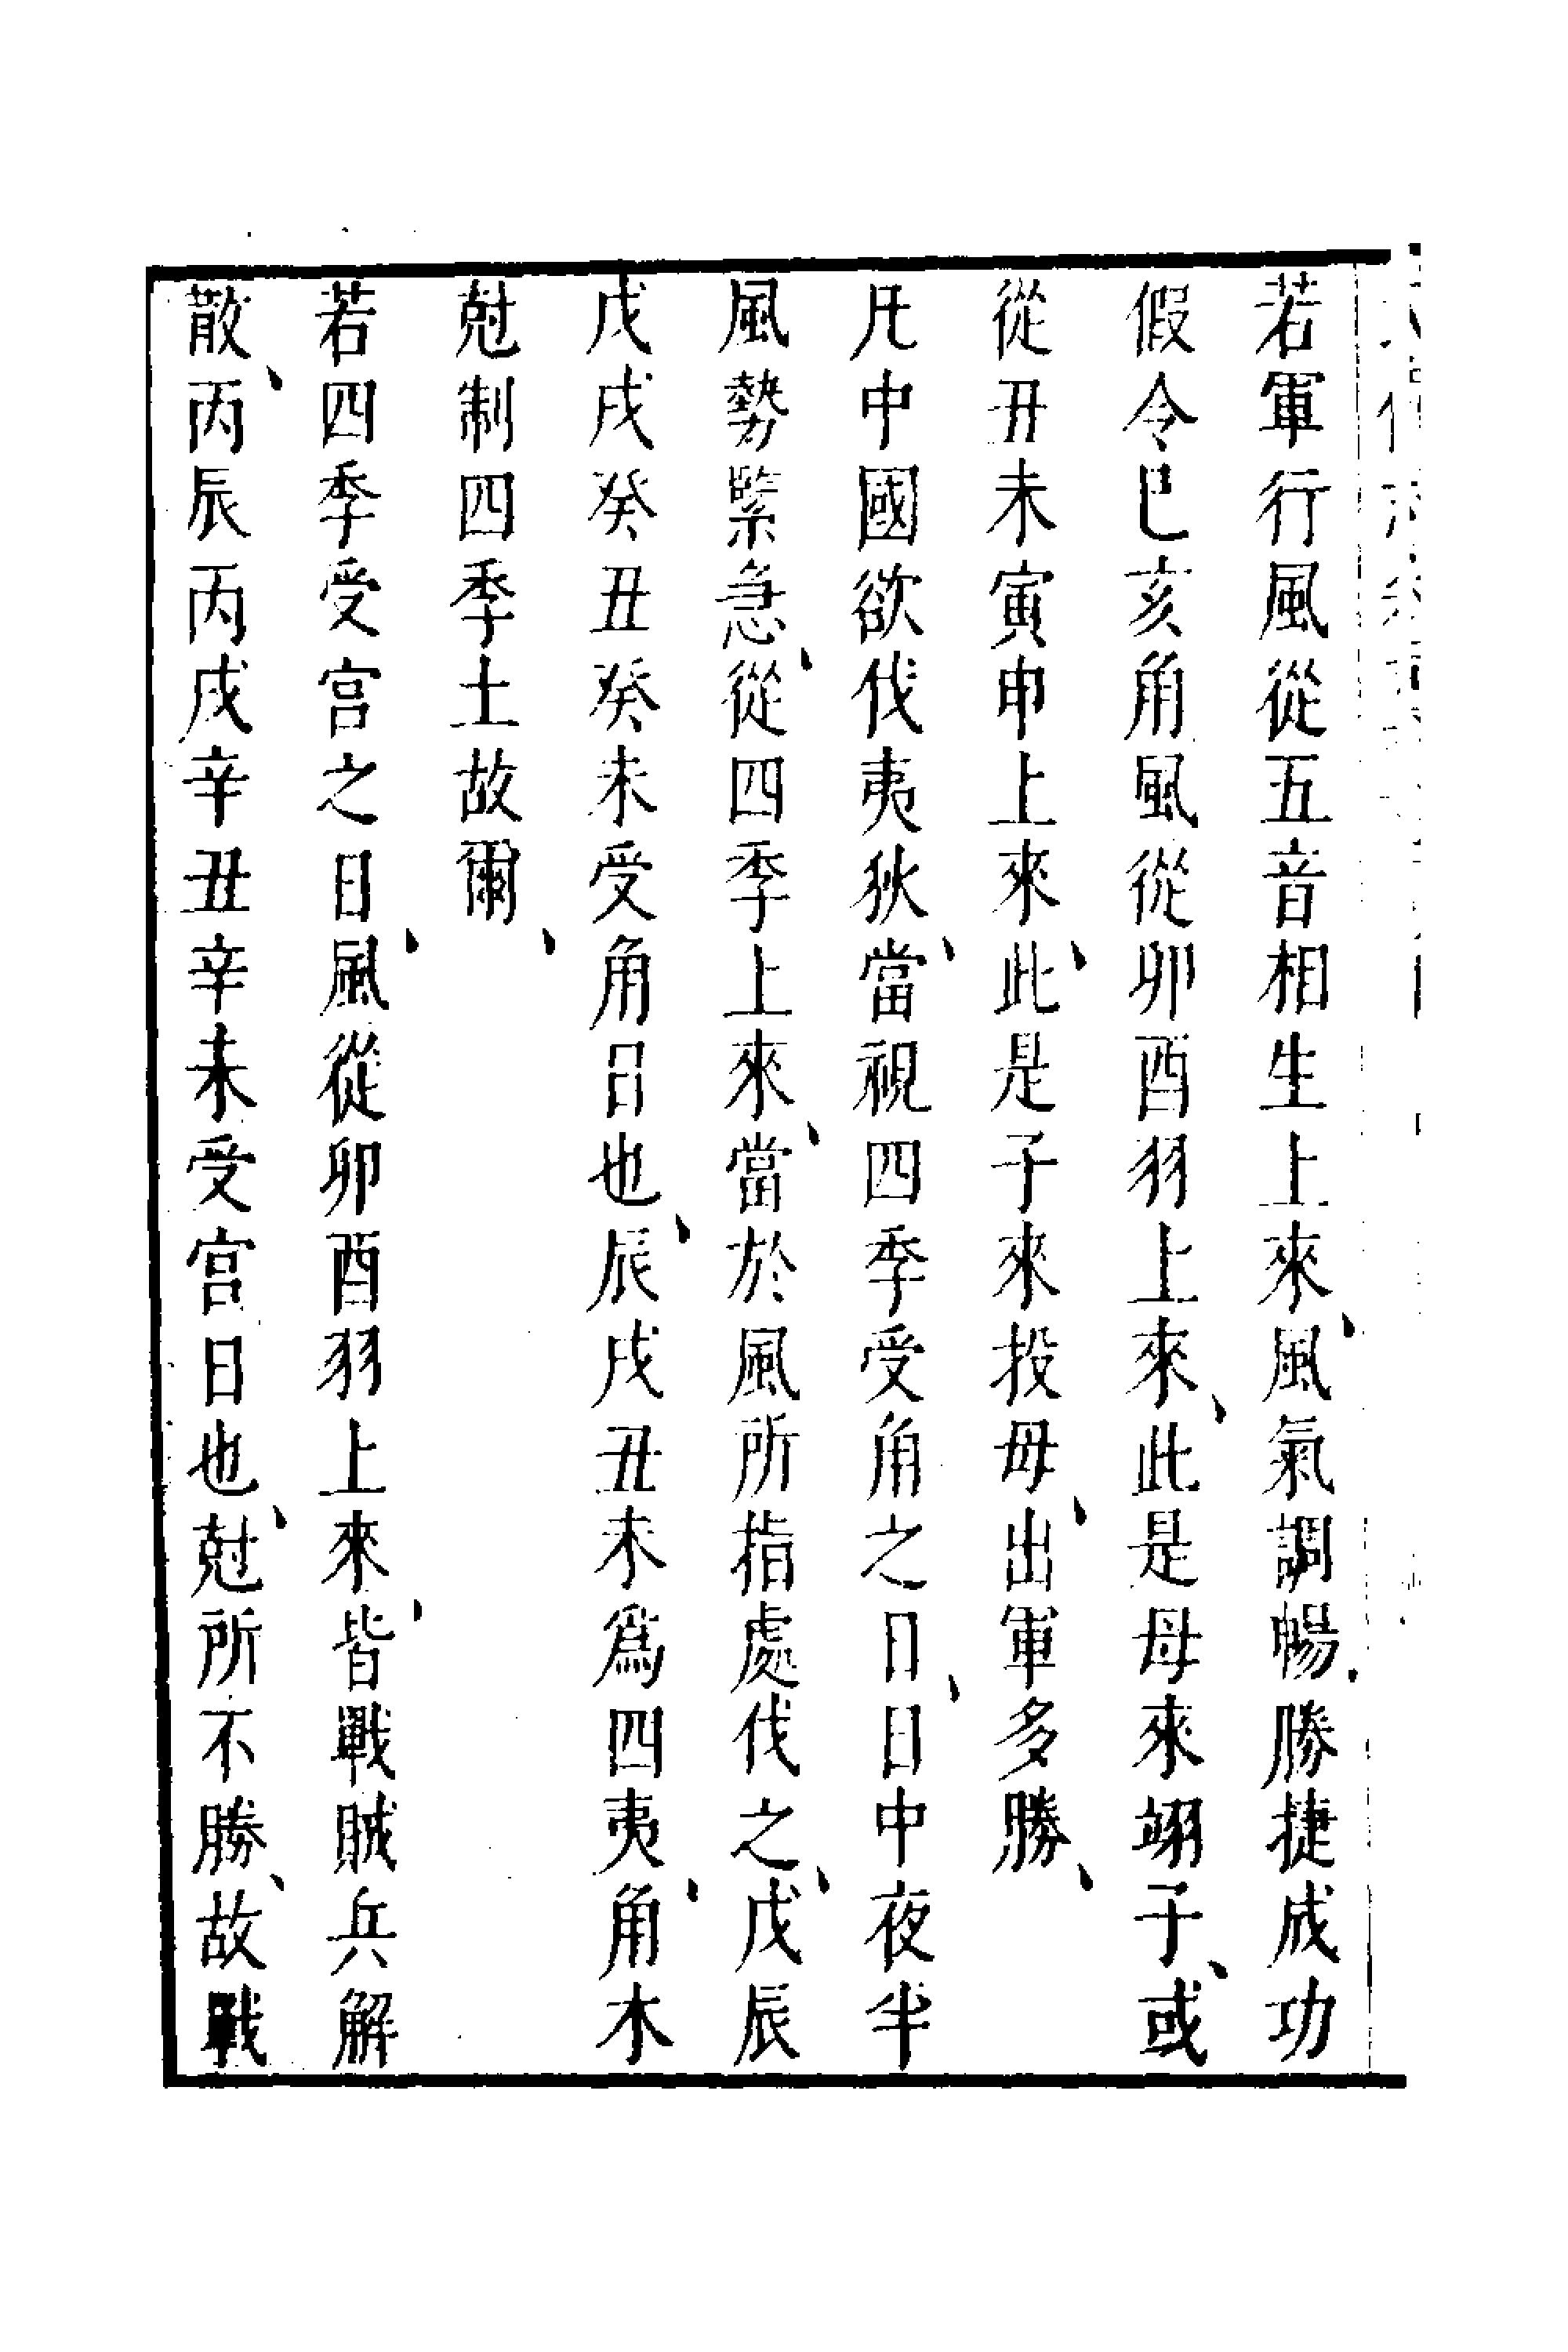 若軍行風從五音相生上來、風氣調暢、勝捷成功
假令巳亥角風從卯酉羽上來、此是母來翊子、或
從丑未寅申上來、此是子來投母、出軍多勝、
凡中國欲伐夷狄、當視四季受角之日、日中夜半
風勢緊急、從四季上來、當於風所指處伐之、戊辰
戊戌癸丑癸未受角日也、辰戌丑未爲四夷、角木
尅制四季土故爾、
若四季受宫之日、風從卯酉羽上來、皆戰賊兵解
散、丙辰丙戌辛丑辛未受宫日也、尅所不勝、故戰